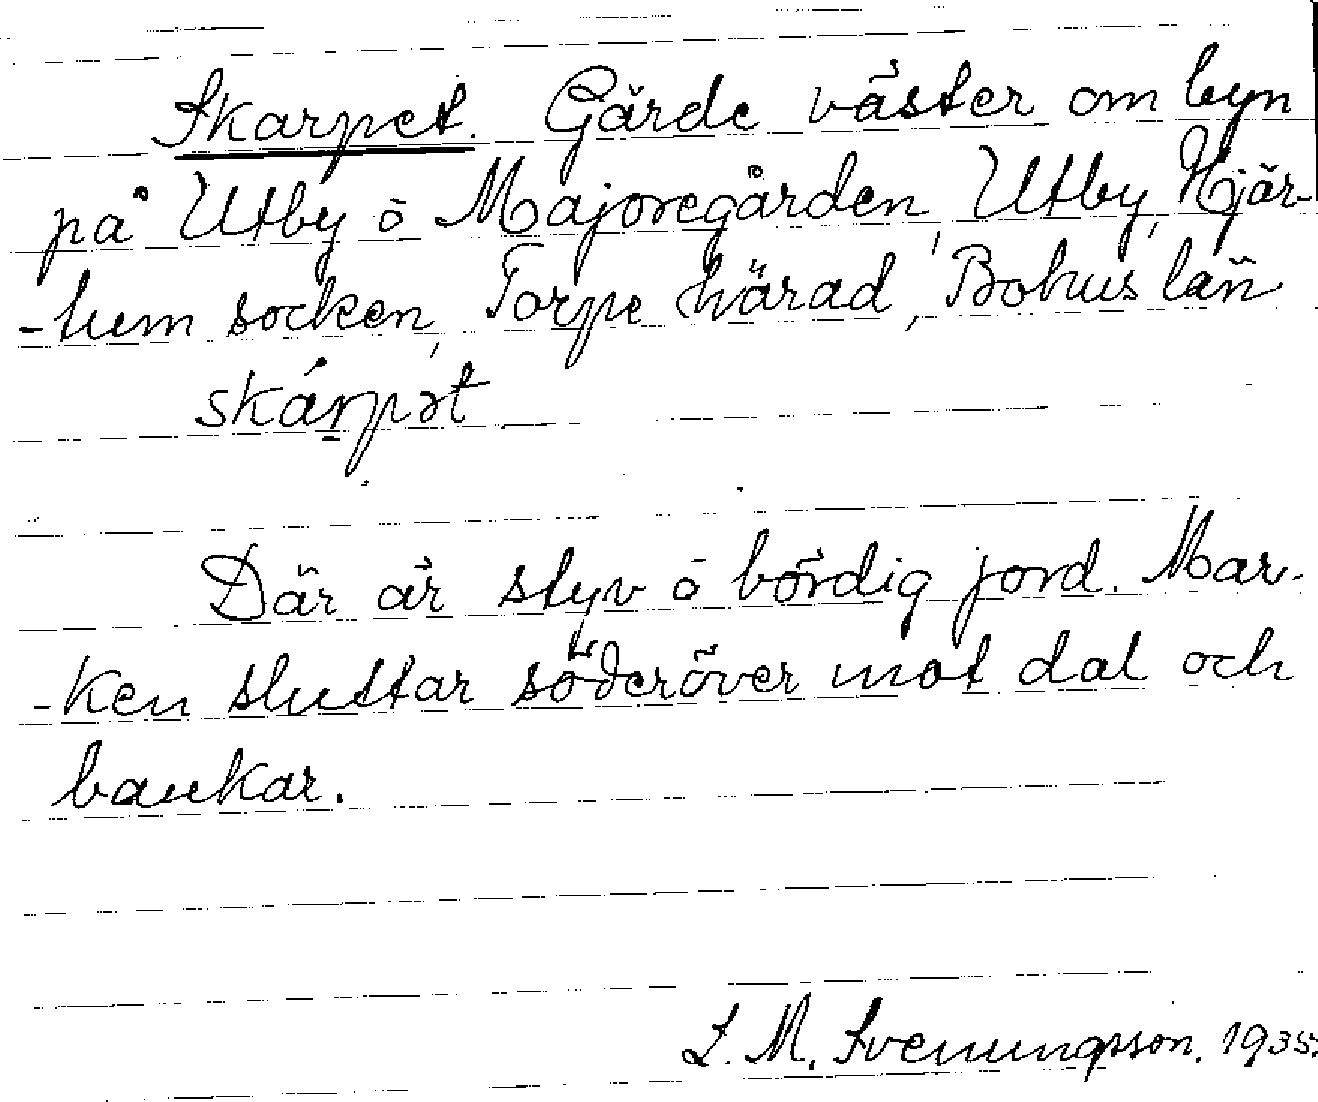 Skarpet. Gärde väster om byn
på Utby ö Majoregården, Utby, Hjär-
-tum socken, Torpe härad, Bohus län
skárpət
Där är styv ö bördig jord. Mar-
-ken sluttar söderöver mot dal och
bankar.
L. M. Svenungsson. 1935.